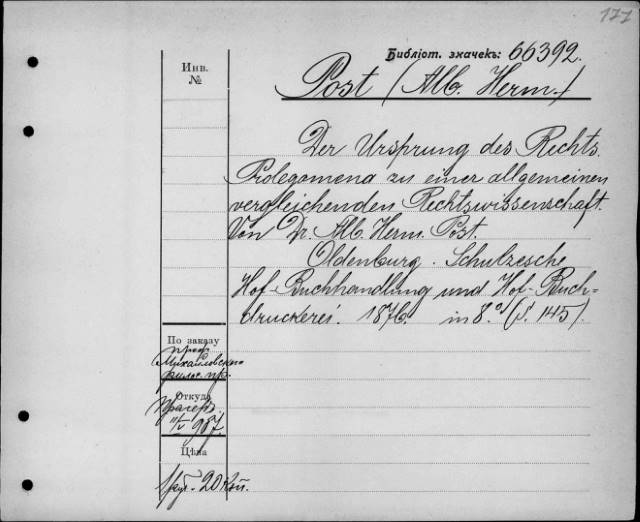 177
Библіот. значекъ: 66392.
Инв. №
Post (Alb. Herm.)
Der Ursprung des Rechts.
Prolegomena zu einer allgemeinen
vergleichenden Rechtswissenschaft.
Von Dr. Alb. Herm. Post.
Oldenburg. Schulzesche
Hof-Buchhandlung und Hof-Buch-
druckerei. 1876. in 8.º (S. 145).
По заказу
проф.
Михайловскаго
Откуда
Прагеръ
Цѣна
1 руб. 20 коп.